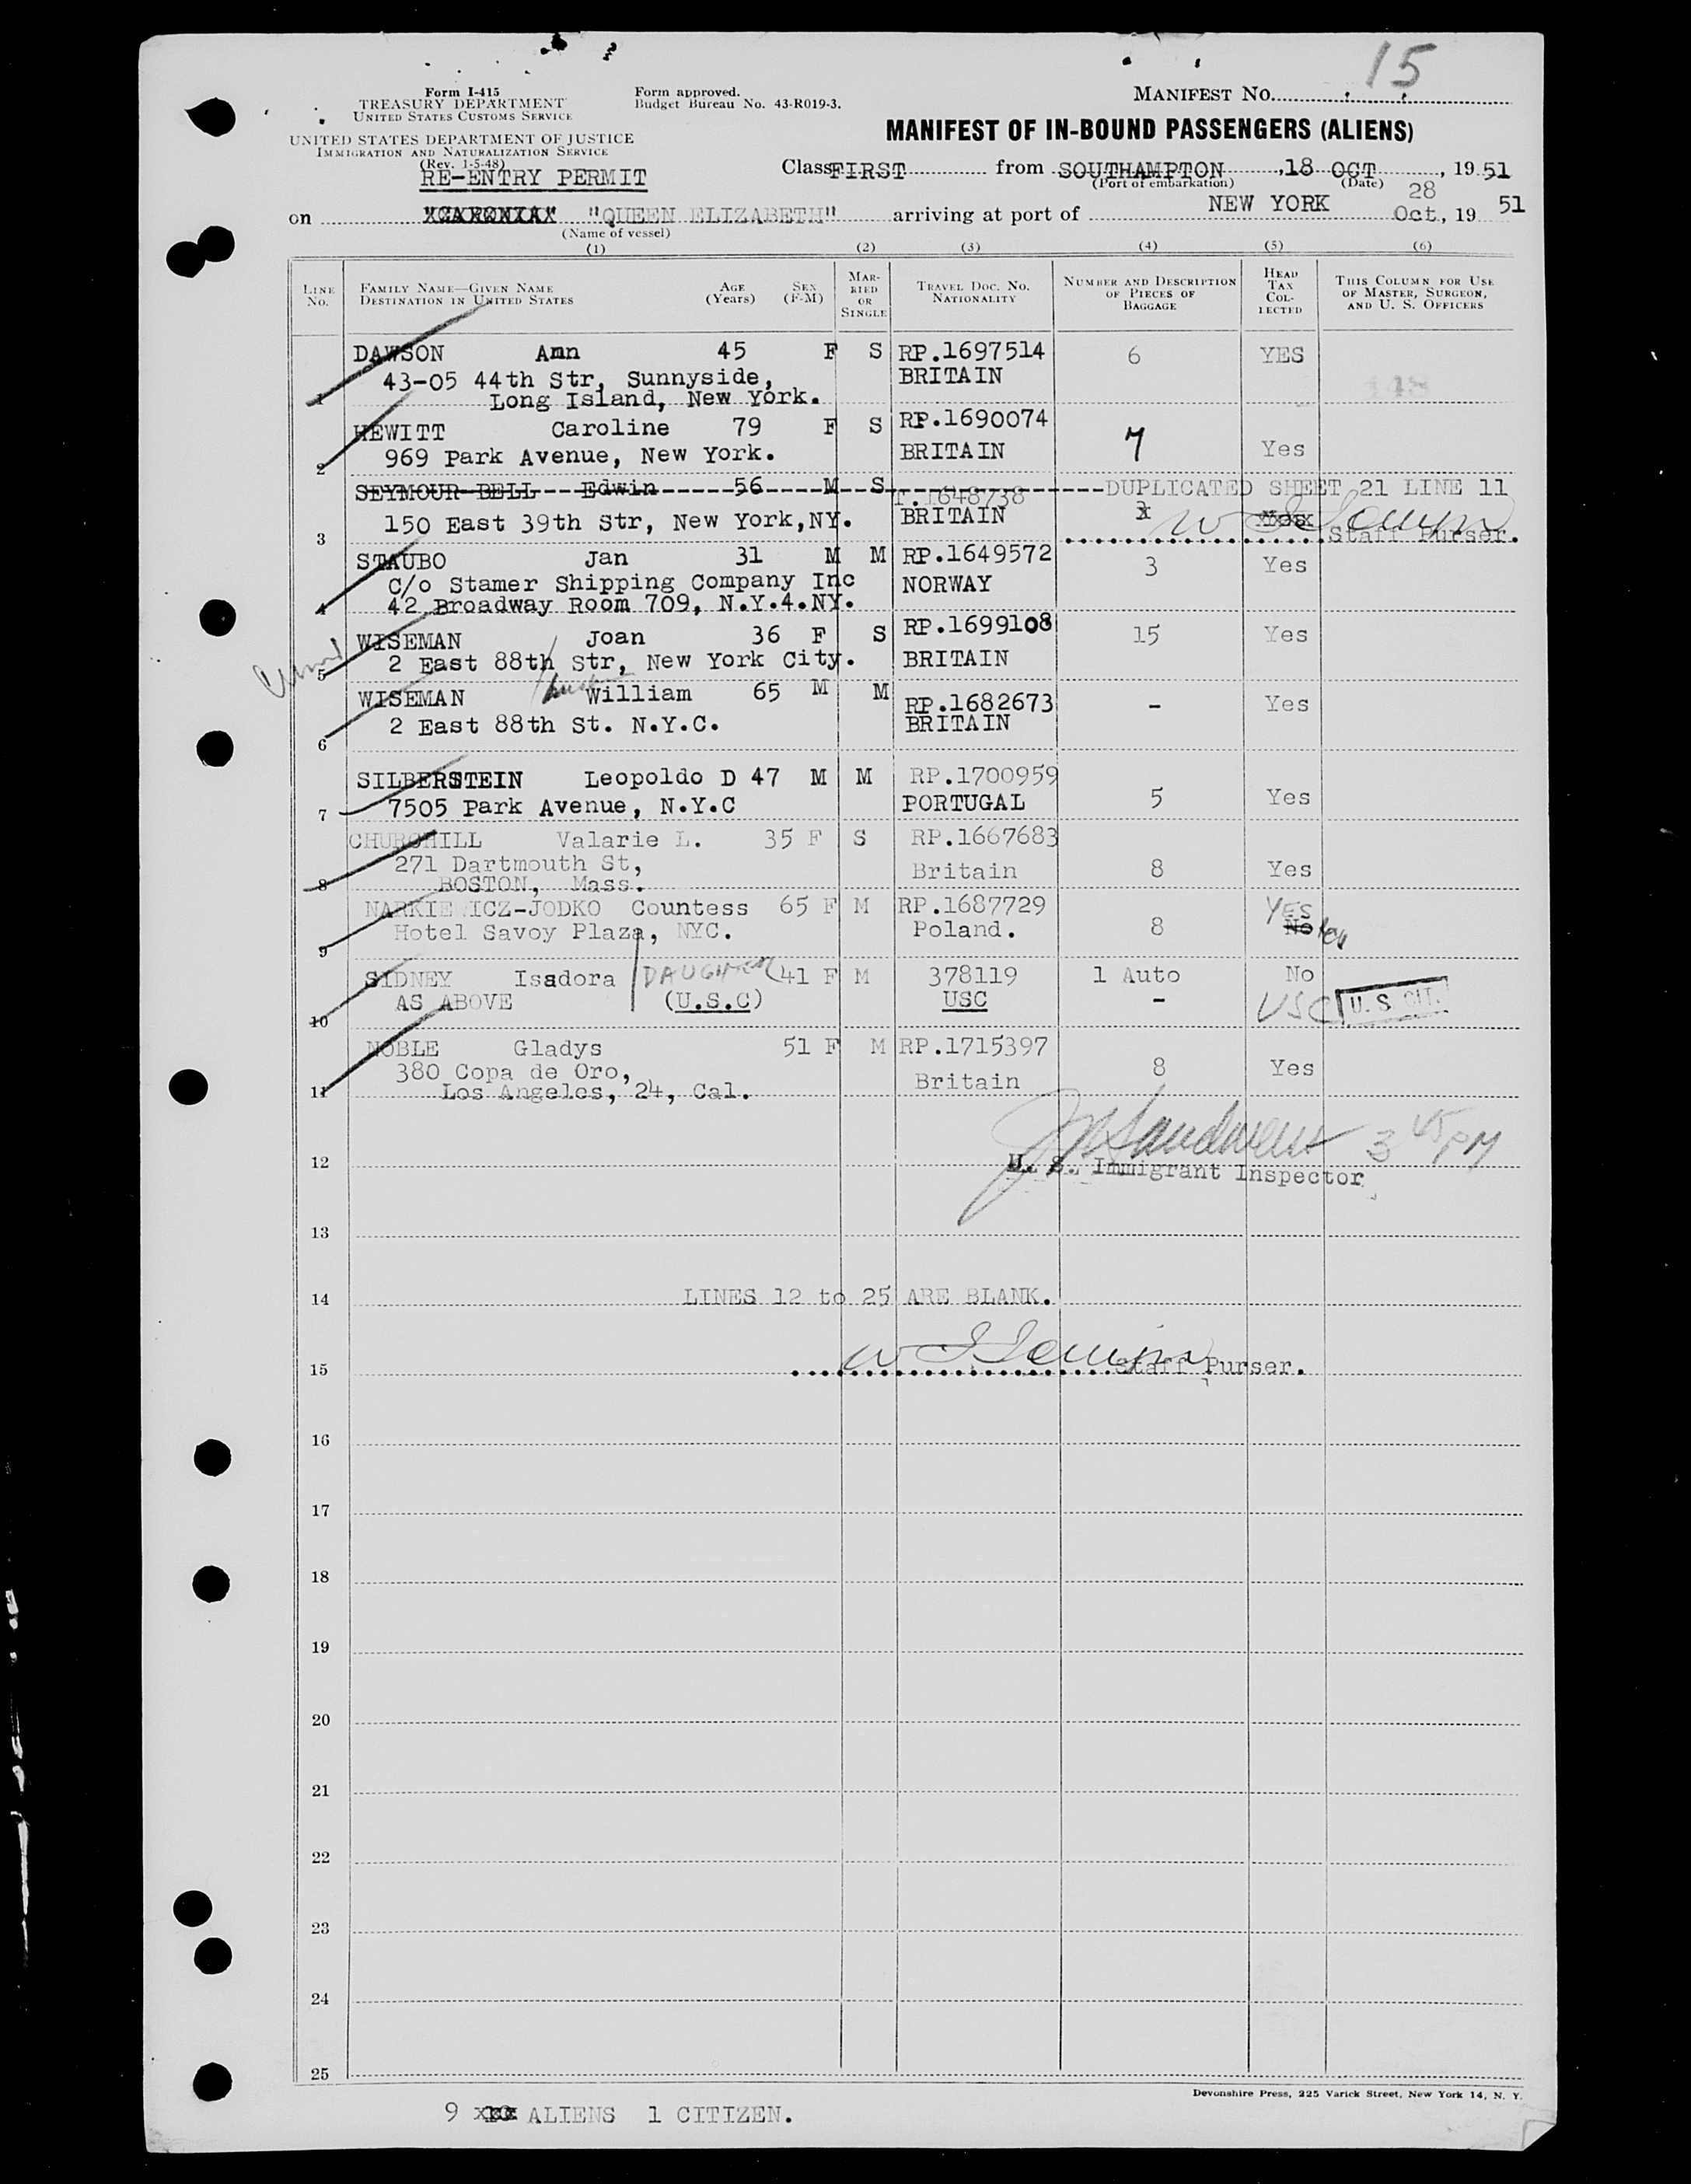 15
Form I-415
TREASURY DEPARTMENT
UNITED STATES CUSTOMS SERVICE
UNITED STATES DEPARTMENT OF JUSTICE
IMMIGRATION AND NATURALIZATION SERVICE
(Rev. 1-5-48)
RE-ENTRY PERMIT
Form approved.
Budget Bureau No. 43-R019-3.
MANIFEST NO.
MANIFEST OF IN-BOUND PASSENGERS (ALIENS)
Class FIRST from SOUTHAMPTON, 18 OCT, 19 51
(Port of embarkation) (Date)
on "CARONIA" "QUEEN ELIZABETH" arriving at port of NEW YORK 28 Oct, 19 51
(Name of vessel)
(1) (2) (3) (4) (5) (6)
LINE No. FAMILY NAME—GIVEN NAME DESTINATION IN UNITED STATES AGE (Years) SEX (F-M) MARRIED OR SINGLE TRAVEL DOC. NO. NATIONALITY NUMBER AND DESCRIPTION OF PIECES OF BAGGAGE HEAD TAX COLLECTED THIS COLUMN FOR USE OF MASTER, SURGEON, AND U. S. OFFICERS
DAWSON Ann 45 F S RP.1697514 6 YES
43-05 44th Str, Sunnyside, BRITAIN
1 Long Island, New York. 148
HEWITT Caroline 79 F S RP.1690074 7 Yes
2 969 Park Avenue, New York. BRITAIN
SEYMOUR BELL Edwin 56 M S 1648738 DUPLICATED SHEET 21 LINE 11
3 150 East 39th Str, New York, NY. BRITAIN 3 Yes
Staff Purser.
STAUBO Jan 31 M M RP.1649572 3 Yes
C/o Stamer Shipping Company Inc NORWAY
4 42 Broadway Room 709, N.Y.4.NY.
WISEMAN Joan 36 F S RP.1699108 15 Yes
5 2 East 88th Str, New York City. BRITAIN
WISEMAN William 65 M M RP.1682673 - Yes
6 2 East 88th St. N.Y.C. BRITAIN
SILBERSTEIN Leopoldo D 47 M M RP.1700959
7 7505 Park Avenue, N.Y.C PORTUGAL 5 Yes
CHURCHILL Valarie L. 35 F S RP.1667683
271 Dartmouth St, Britain 8 Yes
8 BOSTON, Mass.
NARKIEWICZ-JODKO Countess 65 F M RP.1687729 YES
9 Hotel Savoy Plaza, NYC. Poland. 8 No
SIDNEY Isadora DAUGHTER 41 F M 378119 1 Auto No
10 AS ABOVE (U.S.C) USC - USC U. S. CIT.
NOBLE Gladys 51 F M RP.1715397
380 Copa de Oro, Britain 8 Yes
11 Los Angeles, 24, Cal.
3 45 PM
12 U. S. Immigrant Inspector
13
14 LINES 12 to 25 ARE BLANK.
15 Staff Purser.
16
17
18
19
20
21
22
23
24
25
Devonshire Press, 225 Varick Street, New York 14, N. Y.
9 ALIENS 1 CITIZEN.